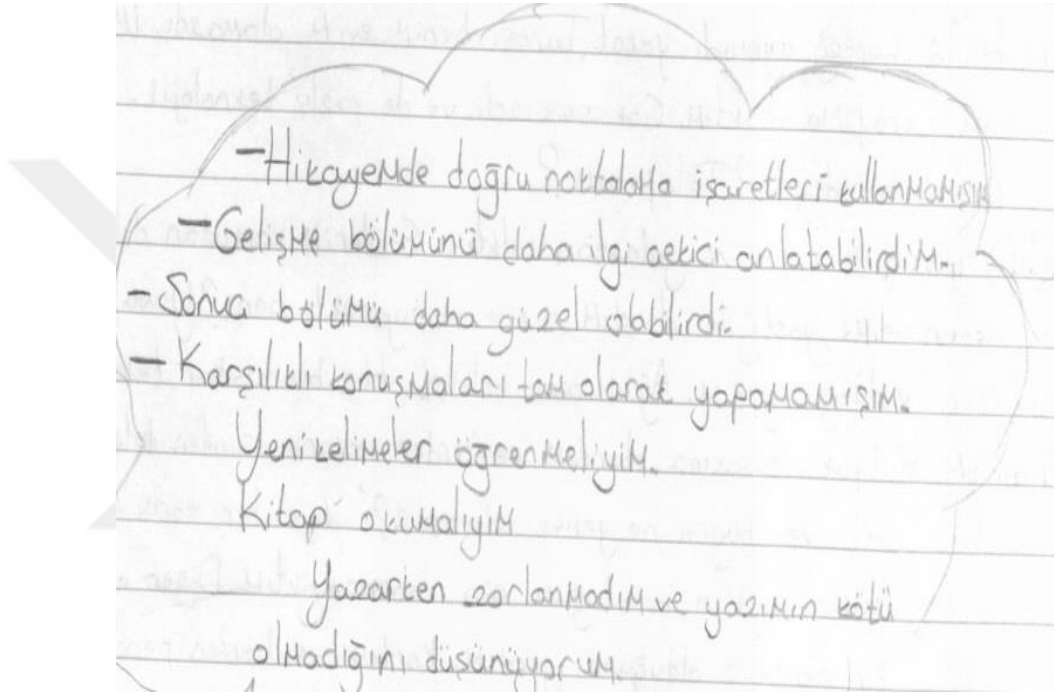 - Hikayemde doğru noktalama işaretleri kullanmamışım
- Gelişme bölümünü daha ilgi çekici anlatabilirdim.
- Sonuç bölümü daha güzel olabilirdi.
- Karşılıklı konuşmaları tam olarak yapamamışım.
Yeni kelimeler öğrenmeliyim.
Kitap okumalıyım
Yazarken zorlanmadım ve yazımın kötü
olmadığını düşünüyorum.